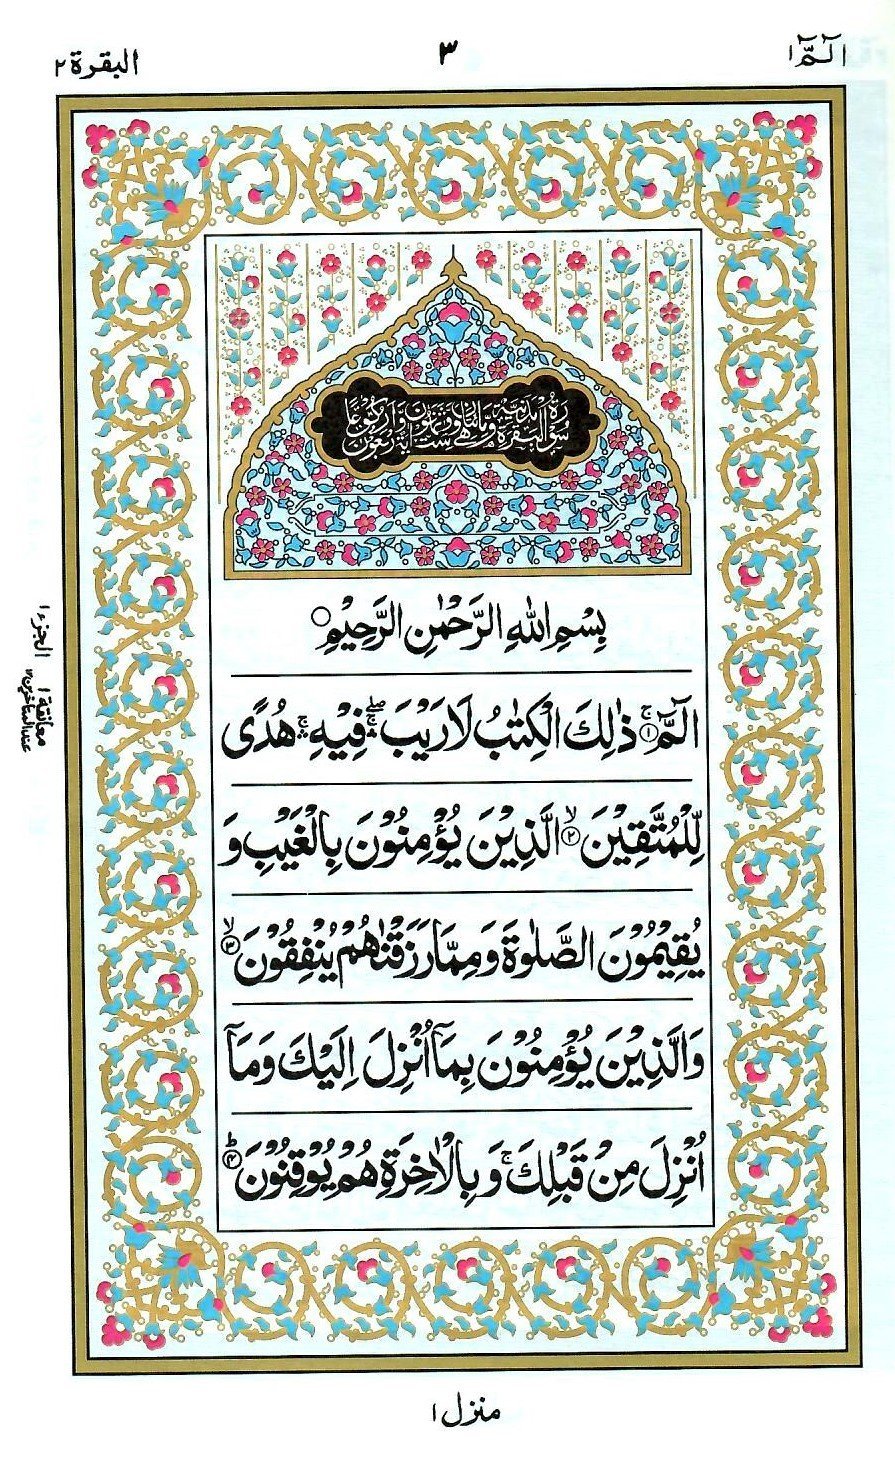 الٓمّٓ ١
٣
البقرة ٢
سورة البقرة مدنية وهي مائتان وست وثمانون آية وأربعون ركوعا
بِسْمِ اللهِ الرَّحْمٰنِ الرَّحِيْمِ ○
الٓمّٓ ۚ﴿١﴾ ذٰلِكَ الْكِتٰبُ لَا رَيْبَ ۛۖ فِيْهِ ۛۚ هُدًى
لِّلْمُتَّقِيْنَ ۙ﴿٢﴾ الَّذِيْنَ يُؤْمِنُوْنَ بِالْغَيْبِ وَ
يُقِيْمُوْنَ الصَّلٰوةَ وَمِمَّا رَزَقْنٰهُمْ يُنْفِقُوْنَ ۙ﴿٣﴾
وَالَّذِيْنَ يُؤْمِنُوْنَ بِمَآ اُنْزِلَ اِلَيْكَ وَمَآ
اُنْزِلَ مِنْ قَبْلِكَ ۚ وَبِالْاٰخِرَةِ هُمْ يُوْقِنُوْنَ ؕ﴿٤﴾
الجزء ١
معانقة ١
عند المتأخرين ١٢
منزل ١